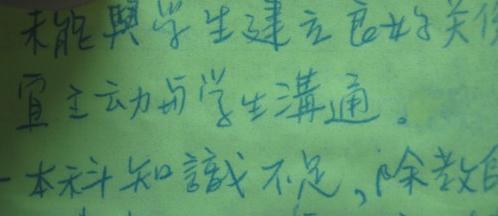 未能與学生建立良好关係
宜主动与学生溝通。
一本科知識不足,除教